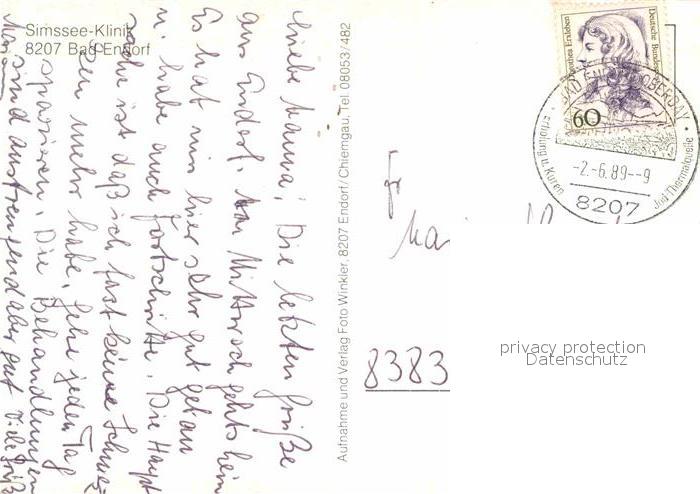 Simssee-Klinik
8207 Bad Endorf
Liebe Mama! Die letzten Grüße
aus Endorf. Am Mittwoch gehts heim
Es hat mir hier sehr gut getan
u. habe auch Fortschritte. Die Haupt
sache ist daß ich fast keine Schmer
zen mehr habe. Gehe jeden Tag
spazieren. Die Behandlungen
sind anstrengend aber gut Viele Grüß
Aufnahme und Verlag Foto Winkler, 8207 Endorf/Chiemgau, Tel. 08053/482
Dorothea Erxleben
Deutsche Bundes
60
BAD ENDORF, OBERBAY.
Erholung u. Kuren
Jod-Thermalquelle
-2.-6.89--9
8207
Fr
8383
privacy protection
Datenschutz